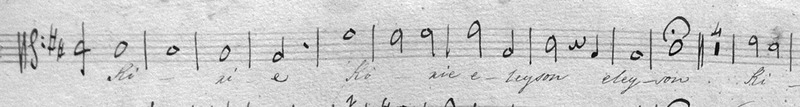 Ki - ri e Ki rie e - leyson eley - son . Ki -